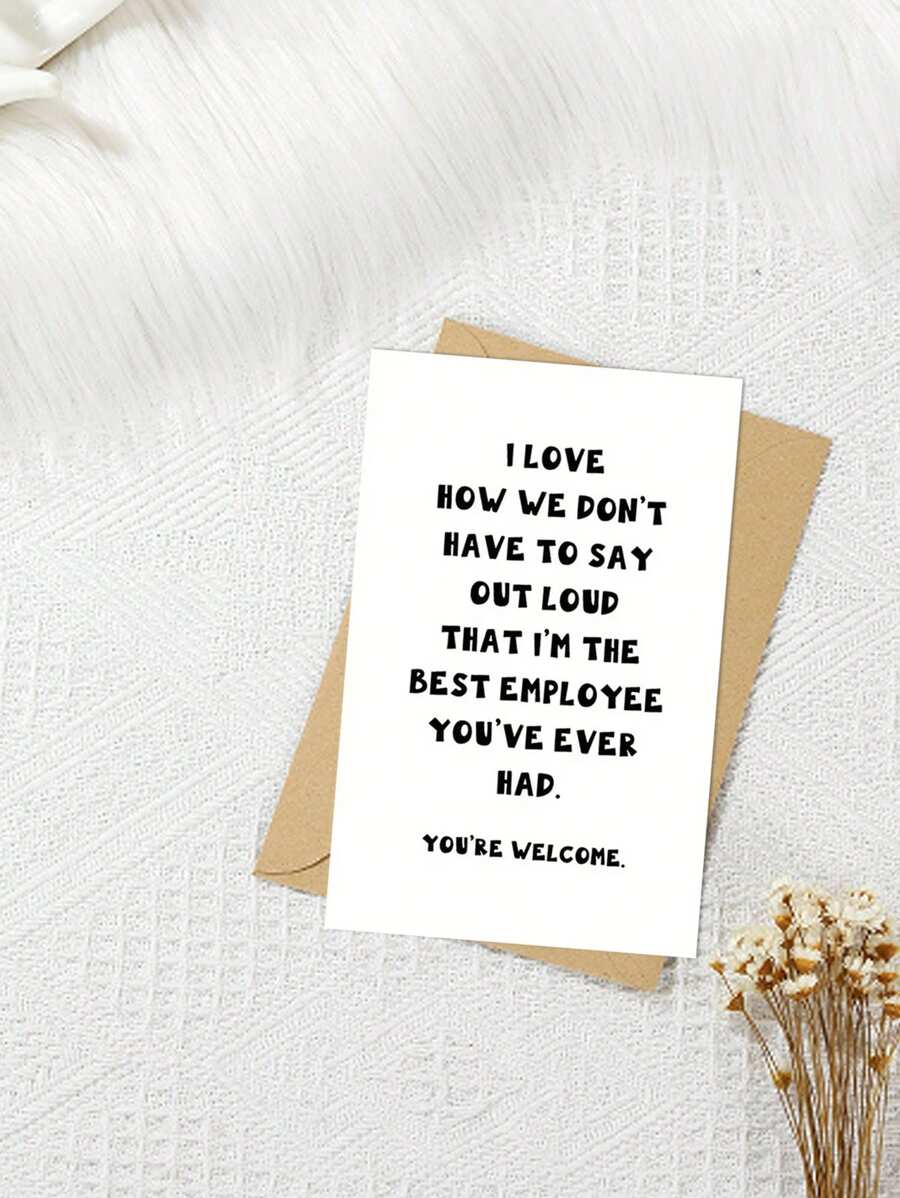 I LOVE
HOW WE DON'T
HAVE TO SAY
OUT LOUD
THAT I'M THE
BEST EMPLOYEE
YOU'VE EVER
HAD.
YOU'RE WELCOME.